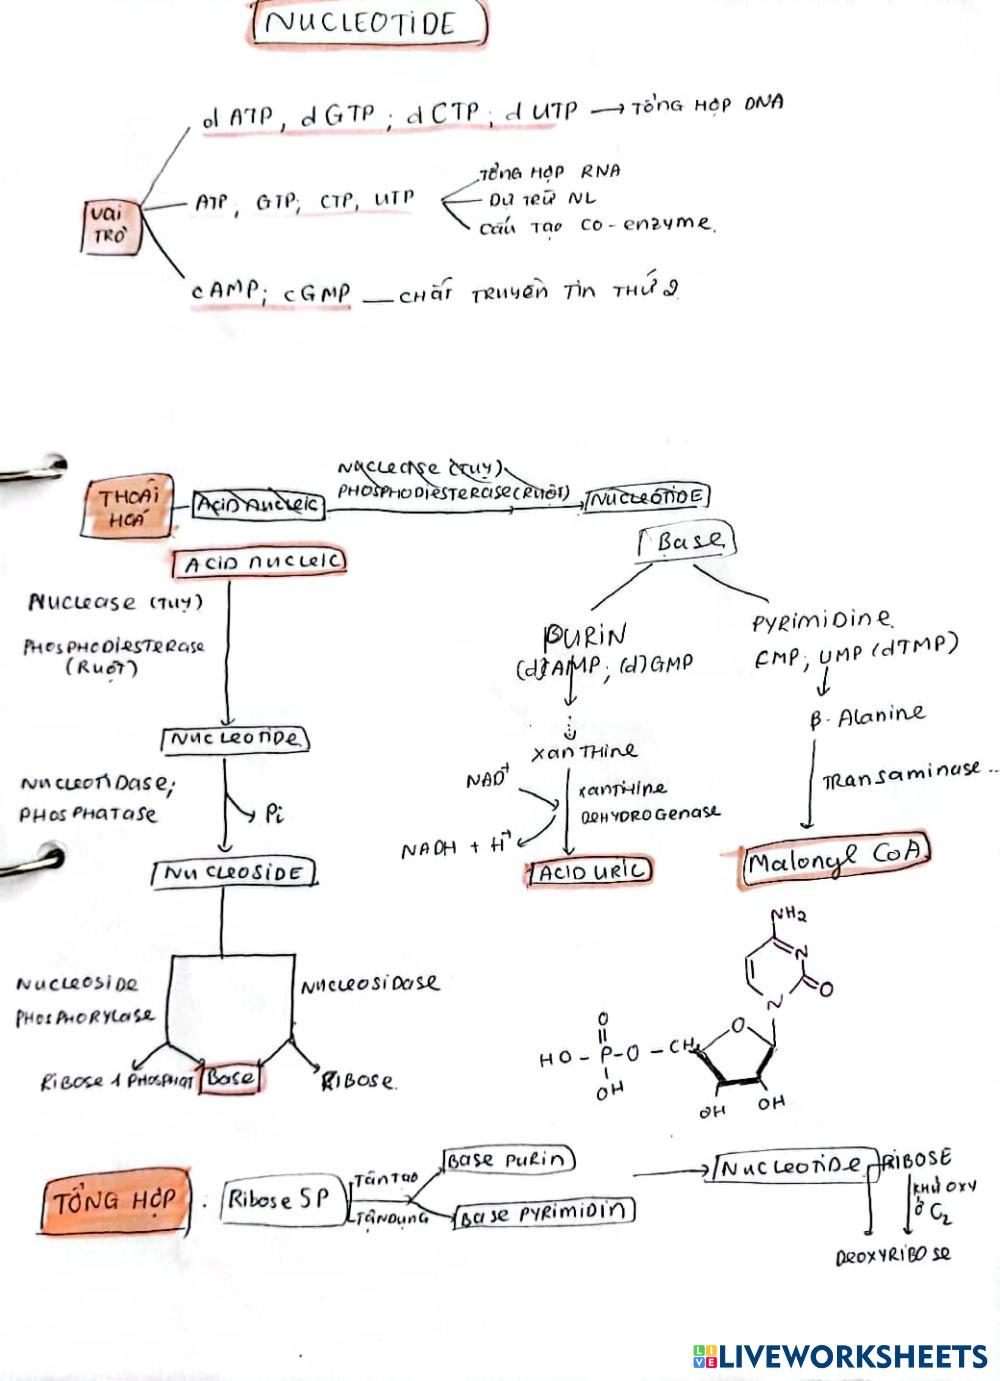 NUCLEOTIDE
dATP, dGTP; dCTP; dUTP → TỔNG HỢP DNA
VAI TRÒ
ATP, GTP; CTP, UTP
TỔNG HỢP RNA
DỰ TRỮ NL
CẤU TẠO CO-enzyme.
cAMP; cGMP — CHẤT TRUYỀN TIN THỨ 2
THOÁI HOÁ
ACID NUCLEIC
NUCLEASE (TUỴ)
PHOSPHODIESTERASE (RUỘT)
NUCLEOTIDE
ACID NUCLEIC
NUCLEASE (TUỴ)
PHOSPHODIESTERASE
(RUỘT)
NUCLEOTIDE
NUCLEOTIDASE;
PHOSPHATASE
Pi
NUCLEOSIDE
NUCLEOSIDE
PHOSPHORYLASE
NUCLEOSIDASE
RIBOSE 1 PHOSPHAT
Base
RIBOSE.
Base
PURIN
(d)AMP; (d)GMP
XANTHINE
NAD+
XANTHINE
DEHYDROGENASE
NADH + H+
ACID URIC
PYRIMIDINE
CMP; UMP (dTMP)
β-Alanine
TRANSAMINASE...
Malonyl CoA
NH2
N
N
O
O
HO-P-O-CH2
O
OH
OH
OH
TỔNG HỢP
Ribose 5P
TÂN TẠO
TẬN DỤNG
BASE PURIN
BASE PYRIMIDIN
NUCLEOTIDE
RIBOSE
KHỬ OXY
Ở C2
DEOXYRIBOSE
LIVEWORKSHEETS